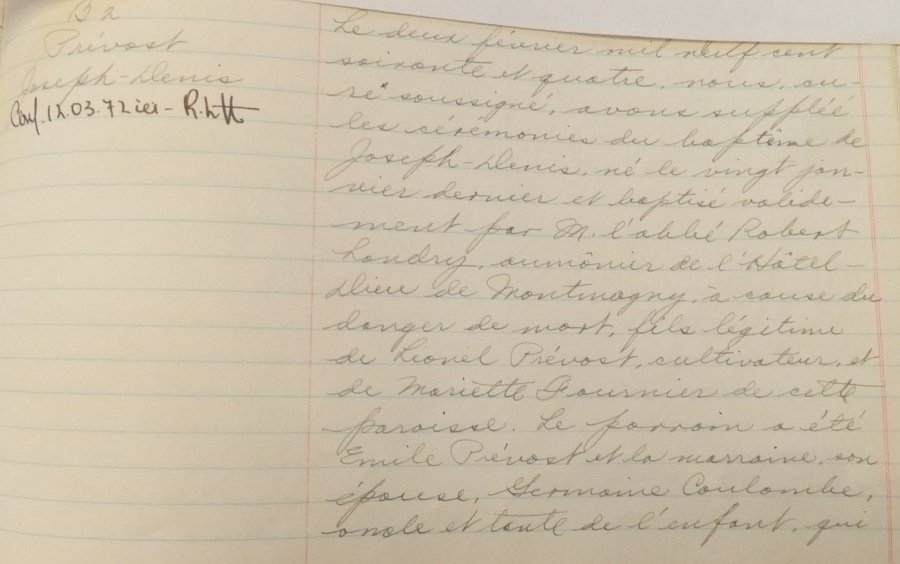 B 2
Prévost
Joseph-Denis
Conf. 12.03.72
Le deux février mil neuf cent
soixante et quatre, nous, cu-
ré soussigné, avons suppléé
les cérémonies du baptême de
Joseph-Denis, né le vingt jan-
vier dernier et baptisé valide-
ment par M. l'abbé Robert
Landry, aumônier de l'Hôtel-
Dieu de Montmagny, à cause du
danger de mort, fils légitime
de Lionel Prévost, cultivateur, et
de Mariette Fournier de cette
paroisse. Le parrain a été
Emile Prévost et la marraine, son
épouse, Germaine Coulombe,
oncle et tante de l'enfant, qui